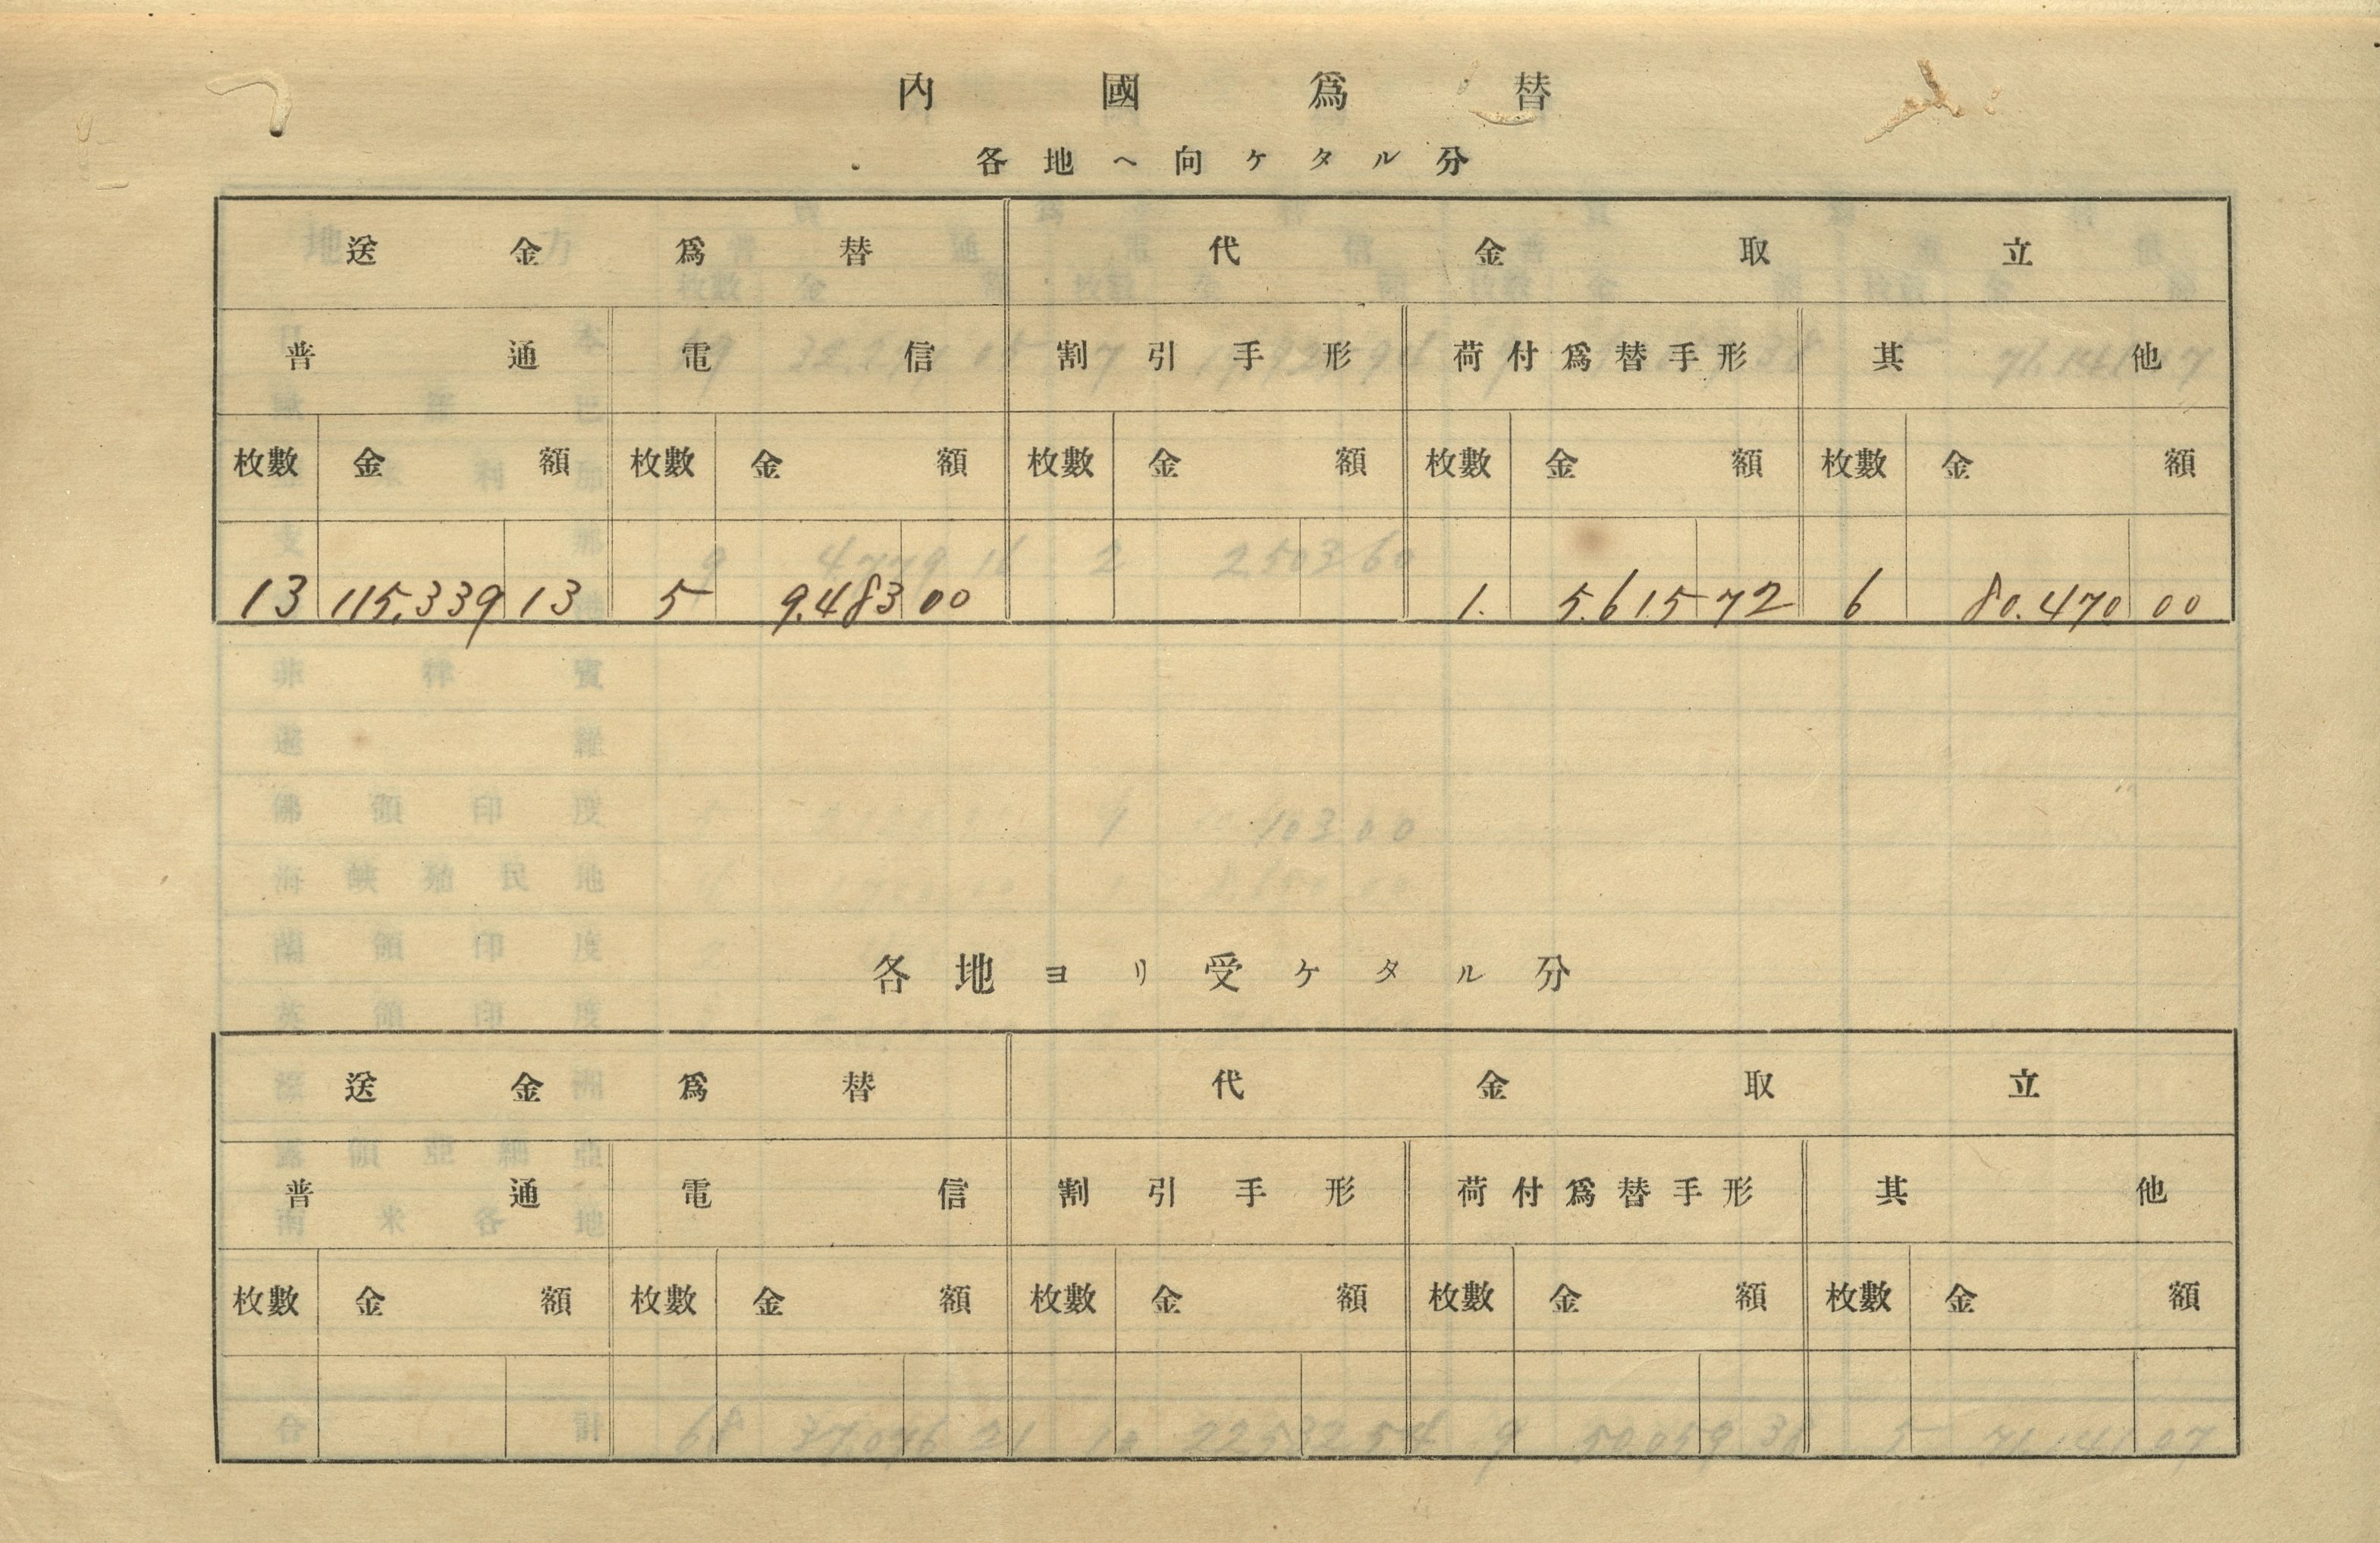 內國爲替
各地ヘ向ケタル分
送金爲替 代金取立
普通 電信 割引手形 荷付爲替手形 其他
枚數 金額 枚數 金額 枚數 金額 枚數 金額 枚數 金額
13 115,339 13 5 9.483 00 1. 5.615 72 6 80.470 00
各地ヨリ受ケタル分
送金爲替 代金取立
普通 電信 割引手形 荷付爲替手形 其他
枚數 金額 枚數 金額 枚數 金額 枚數 金額 枚數 金額